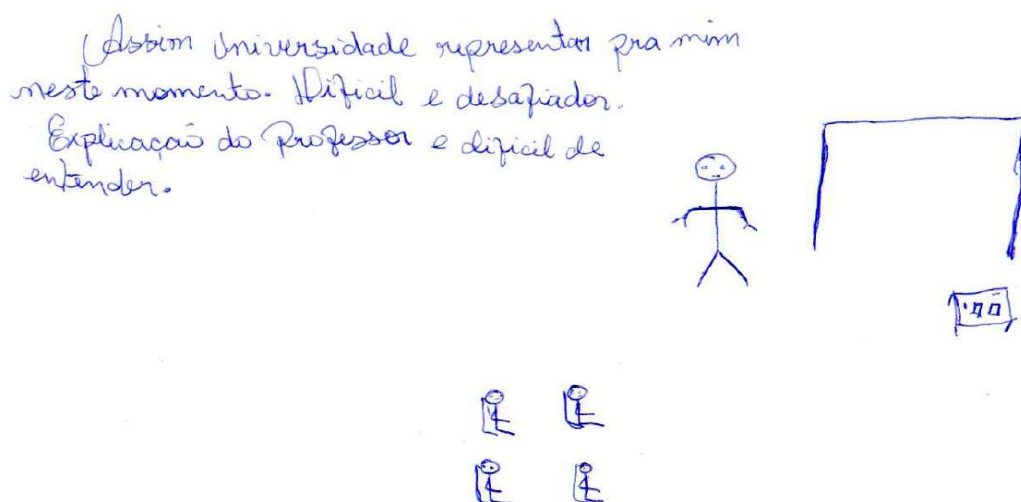 Assim Universidade representar pra mim
neste momento. Dificil e desafiador.
Explicação do Professor e dificil de
entender.